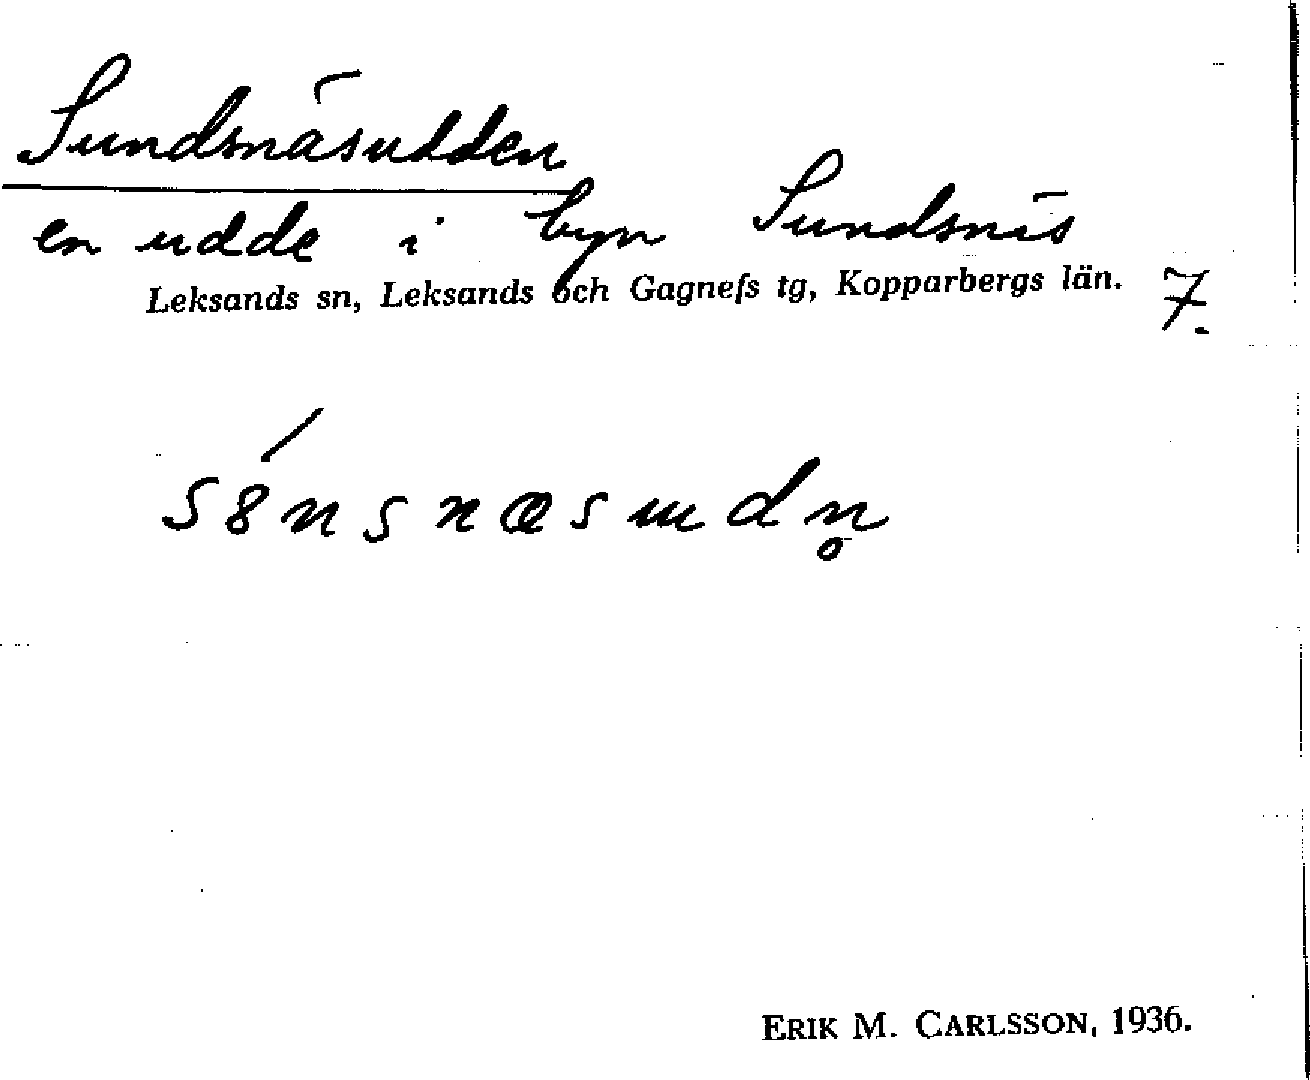 Sundsnäsudden
en udde i byn Sundsnäs
Leksands sn, Leksands och Gagnefs tg, Kopparbergs län. 7.
s8́nsnæsudn̥
ERIK M. CARLSSON, 1936.